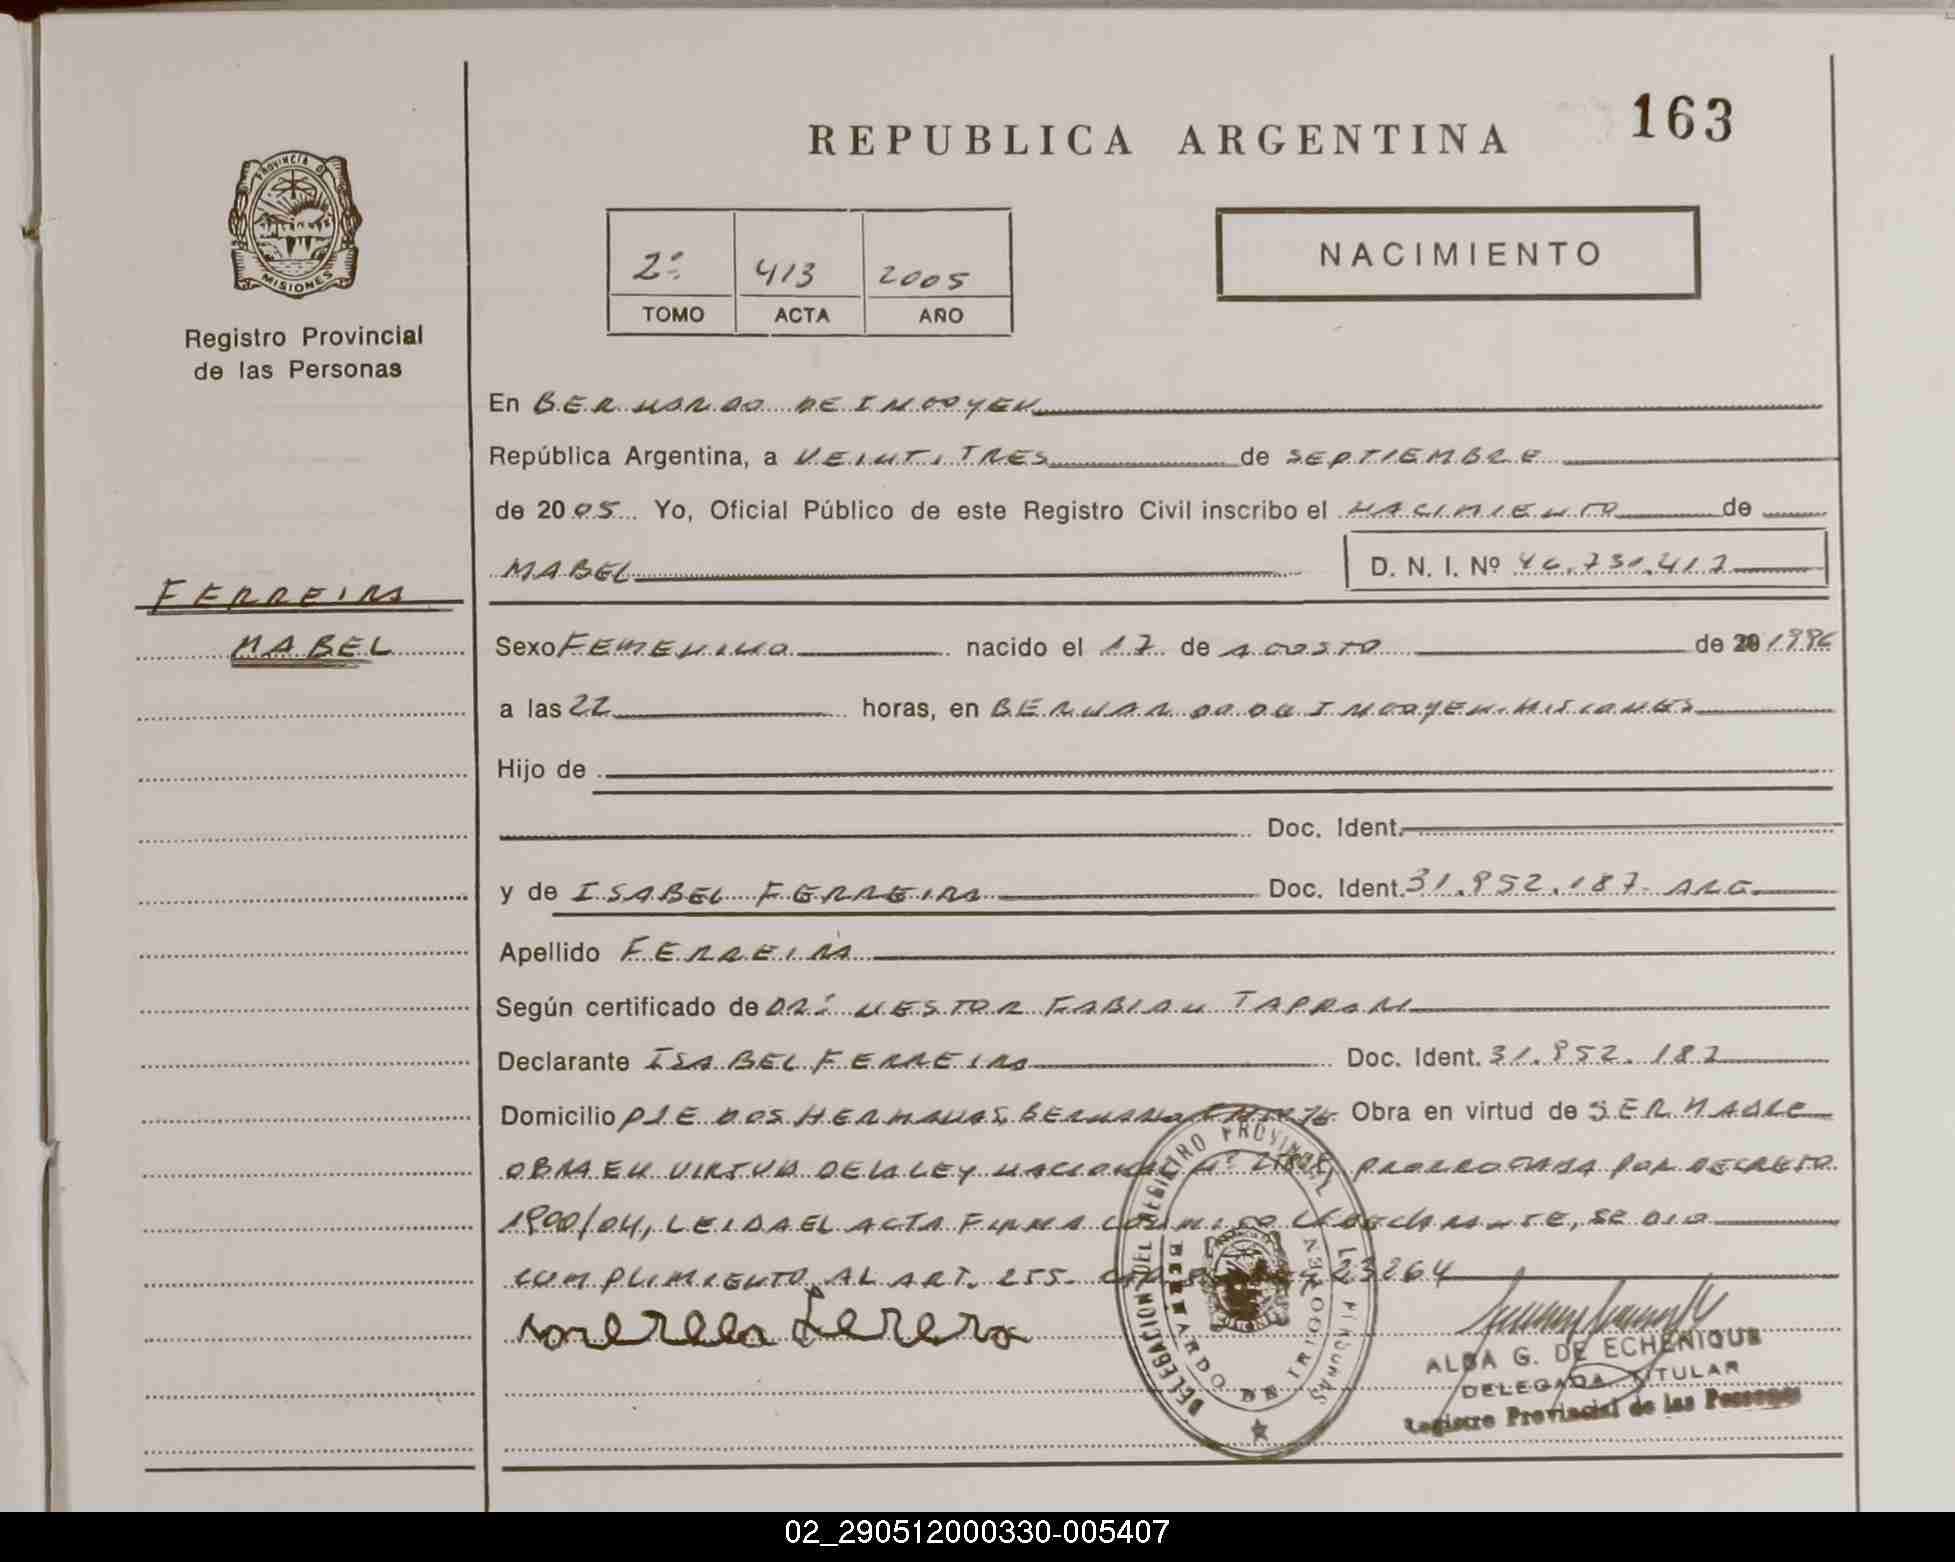 163
REPUBLICA ARGENTINA
PROVINCIA DE
MISIONES
Registro Provincial
de las Personas
2º 413 2005
TOMO ACTA AÑO
NACIMIENTO
En BERNARDO DE IRIGOYEN
República Argentina, a VEINTITRES de SEPTIEMBRE
de 2005 Yo, Oficial Público de este Registro Civil inscribo el NACIMIENTO de
MABEL D. N. I. Nº
FERREIRA
MABEL
Sexo FEMENINO nacido el 17 de AGOSTO de 20 1996
a las 22 horas, en BERNARDO DE IRIGOYEN. MISIONES
Hijo de
Doc. Ident.
y de ISABEL FERREIRA Doc. Ident. 31.952.187. ARG.
Apellido FERREIRA
Según certificado de DR: NESTOR FABIAN
Declarante ISABEL FERREIRA Doc. Ident. 31.952.187
Domicilio PJE DOS HERMANAS, Obra en virtud de SER MADRE
OBRA EN VIRTUD DE LA LEY NACIONAL Nº PRORROGADA POR DECRETO
1900/04, LEIDA EL ACTA FIRMA CONMIGO LA DECLARANTE, SE DIO
CUMPLIMIENTO AL ART. 255. 23264
DELEGACION DEL REGISTRO PROVINCIAL DE LAS PERSONAS
BERNARDO DE IRIGOYEN
ALBA G. DE ECHENIQUE
DELEGADA TITULAR
Registro Provincial de las Personas
02_290512000330-005407